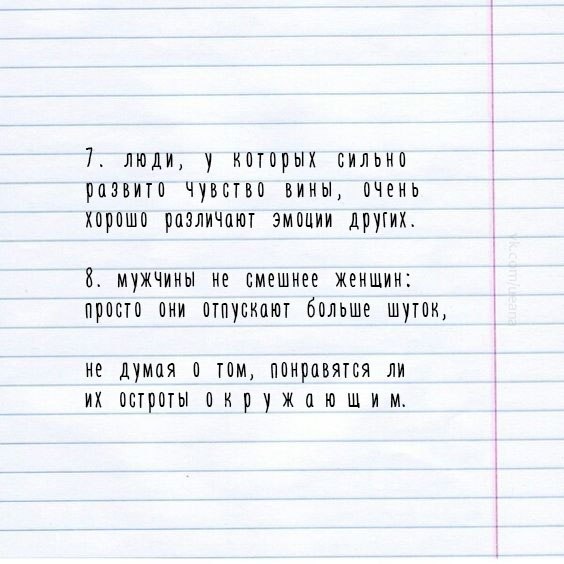 7. люди, у которых сильно
развито чувство вины, очень
хорошо различают эмоции других.
8. мужчины не смешнее женщин:
просто они отпускают больше шуток,
не думая о том, понравятся ли
их остроты о к р у ж а ю щ и м.